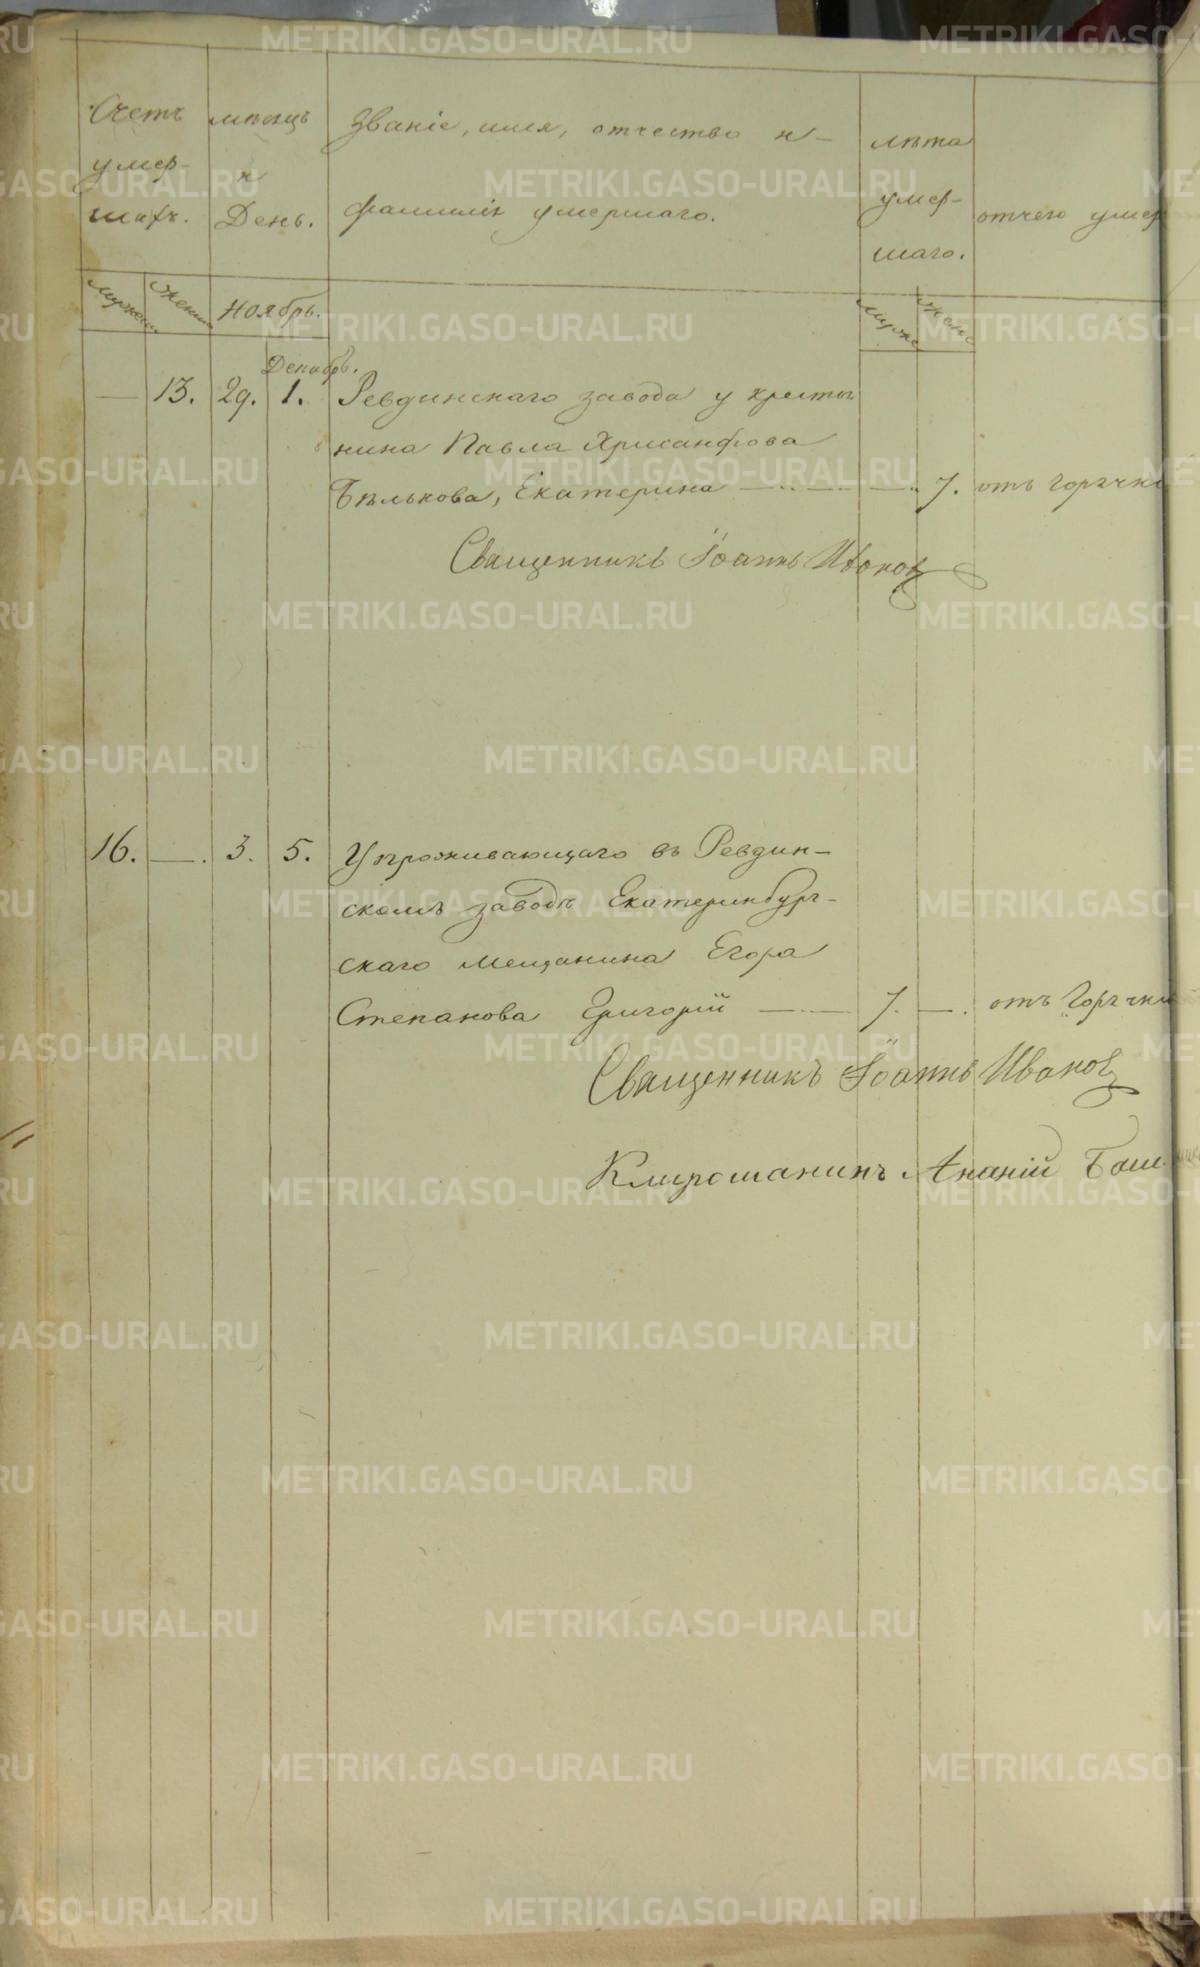 Счетъ умер- шихъ.
мѣсяцъ и День.
Званіе, имя, отчество и-
фамилія умершаго.
лѣта умер- шаго.
отчего умер
мужеск
женск
Ноябрь.
муже
женс
Декабрь.
— 13. 29. 1. Ревдинскаго завода у крестья
нина Павла Хрисанфова
Бѣлькова, Екатерина — — 7. отъ горячки
Священникъ Іоаннъ Ивановъ
16. —. 3. 5. У проживающаго въ Ревдин-
скомъ заводѣ Екатеринбург-
скаго мещанина Егора
Степанова Григорій — 7. —. отъ Горячки
Священникъ Іоаннъ Ивановъ
Клирошанинъ Ананій Баш
METRIKI.GASO-URAL.RU